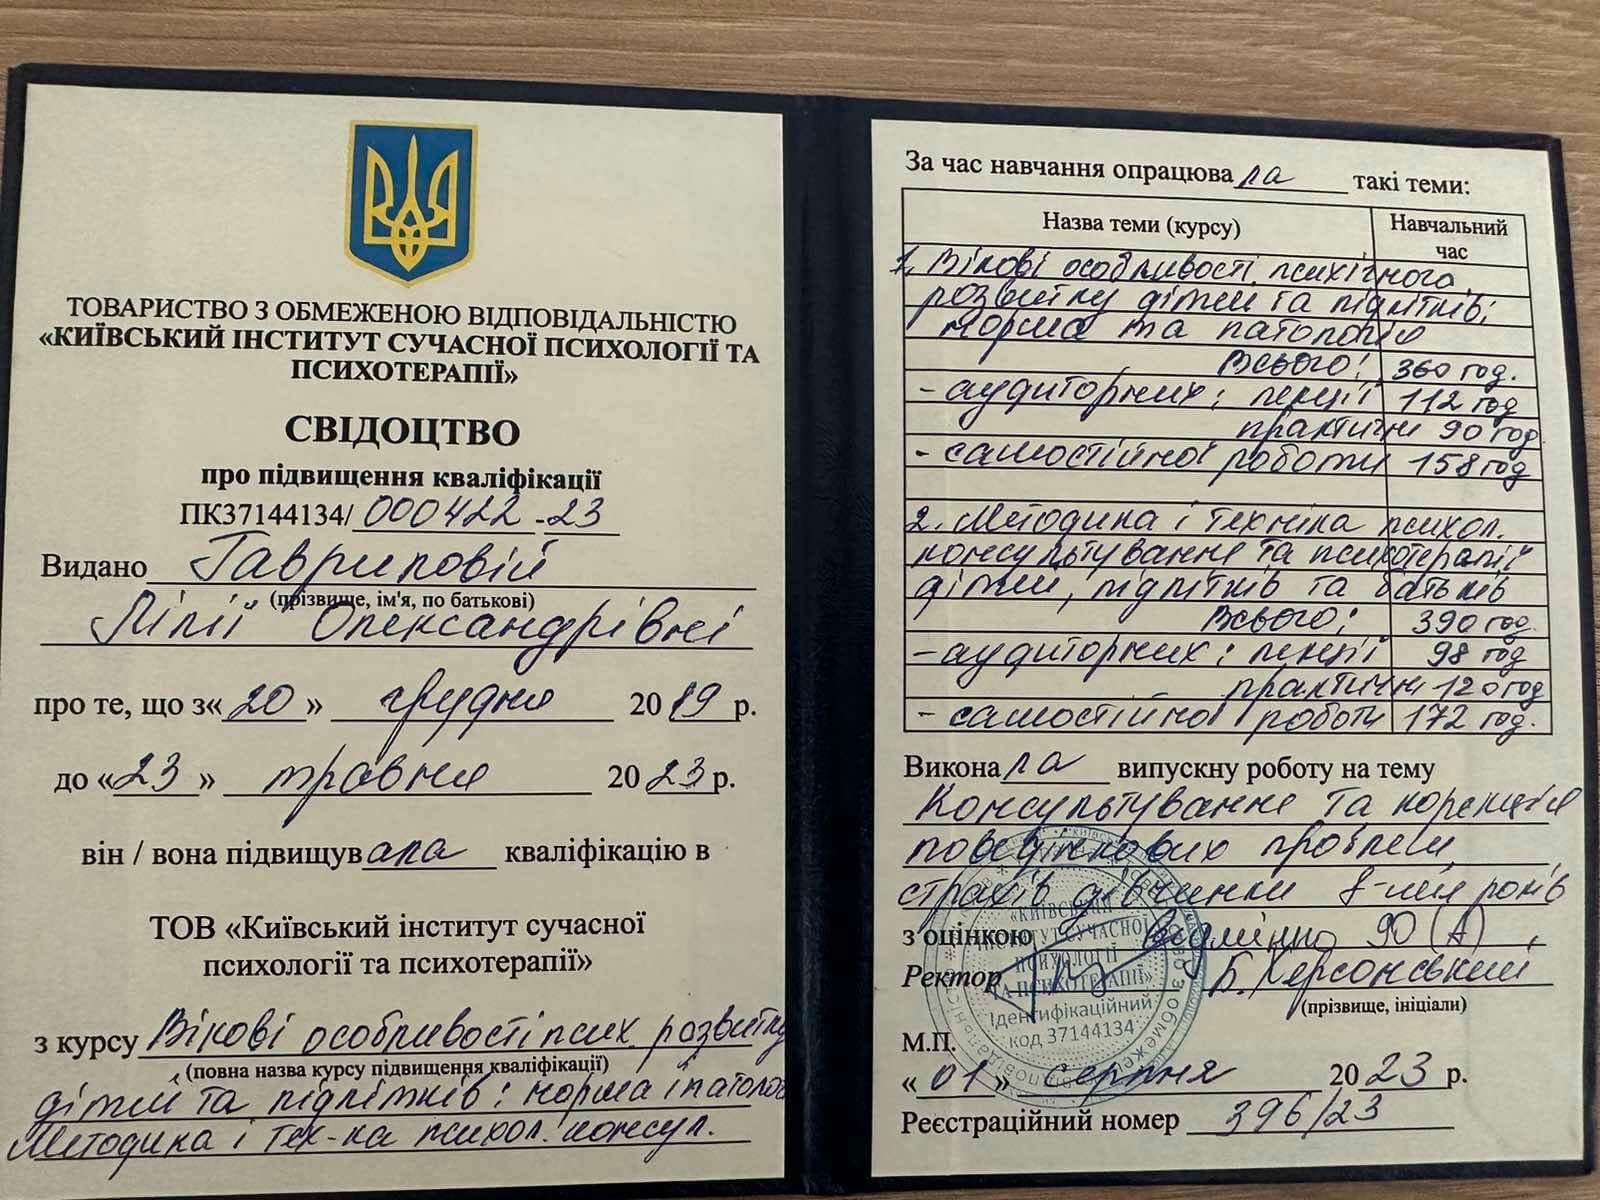 ТОВАРИСТВО З ОБМЕЖЕНОЮ ВІДПОВІДАЛЬНІСТЮ
«КИЇВСЬКИЙ ІНСТИТУТ СУЧАСНОЇ ПСИХОЛОГІЇ ТА
ПСИХОТЕРАПІЇ»
СВІДОЦТВО
про підвищення кваліфікації
ПК37144134/ 000422 -23
Видано Гавриловій
(прізвище, ім'я, по батькові)
Лілії Олександрівні
про те, що з« 20 » грудня 20 19 р.
до « 23 » травня 20 23 р.
він / вона підвищув ала кваліфікацію в
ТОВ «Київський інститут сучасної
психології та психотерапії»
з курсу Вікові особливості псих. розвитку
(повна назва курсу підвищення кваліфікації)
дітей та підлітків: норма і патолог
Методика і тех-ка психол. консул.
За час навчання опрацюва ла такі теми:
Назва теми (курсу) Навчальний час
1. Вікові особливості психічного
розвитку дітей та підлітків:
норма та патологія
Всього: 360 год.
- аудиторних: лекції 112 год
практичні 90 год.
- самостійної роботи 158 год
2. Методика і техніка психол.
консультування та психотерапії
дітей, підлітків та батьків
Всього: 390 год.
- аудиторних: лекції 98 год
практичні 120 год
- самостійної роботи 172 год.
Викона ла випускну роботу на тему
Консультування та корекція
поведінкових проблем,
страхів дівчинки 8-ми років
з оцінкою відмінно 90 (А)
Ректор Б. Херсонський
(прізвище, ініціали)
«КИЇВСЬКИЙ
ІНСТИТУТ СУЧАСНОЇ
ПСИХОЛОГІЇ
ТА ПСИХОТЕРАПІЇ»
Ідентифікаційний
код 37144134
М.П.
« 01 » серпня 20 23 р.
Реєстраційний номер 396/23